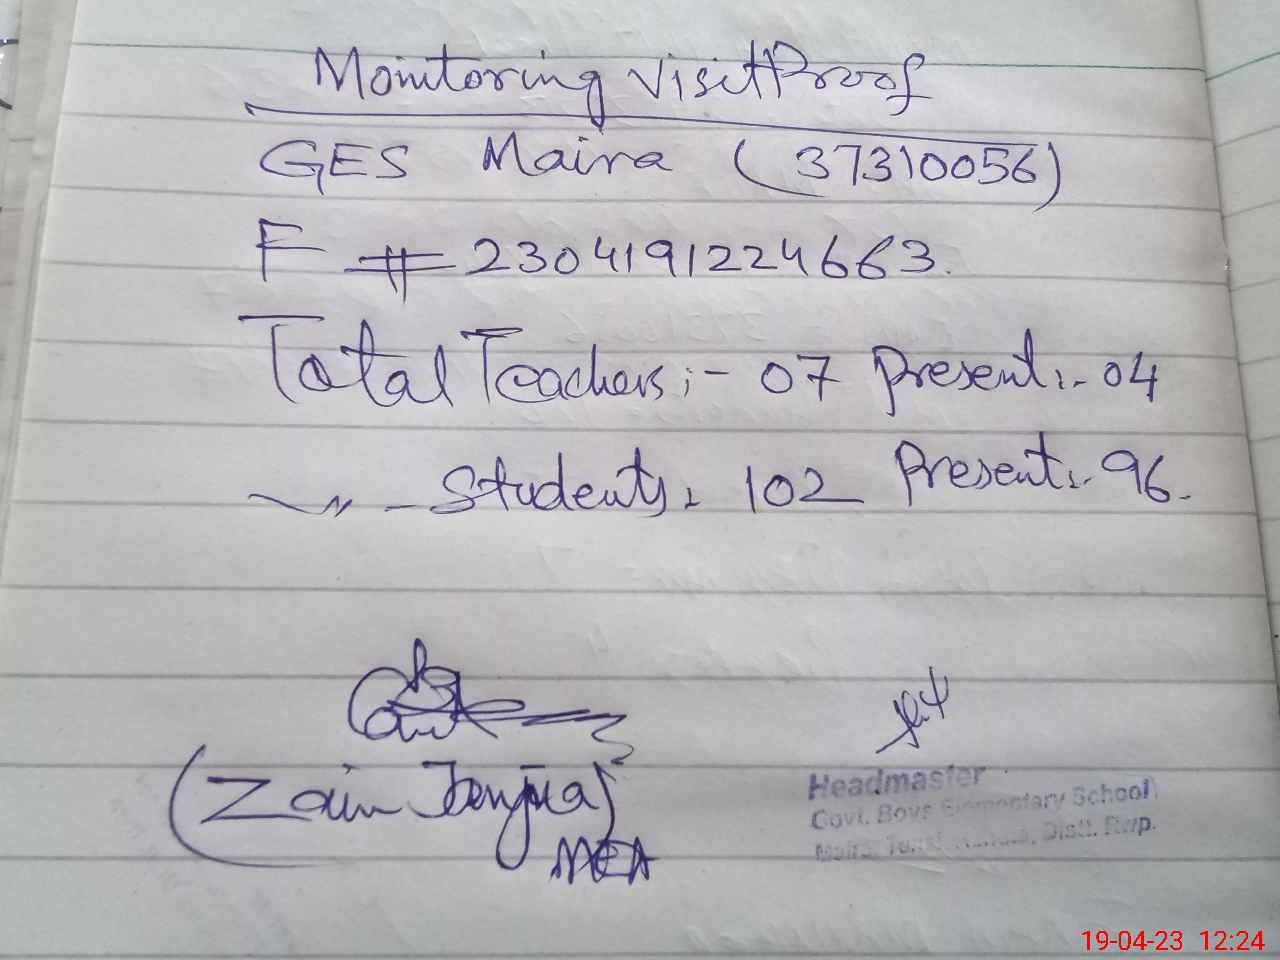 Monitoring Visit Proof
GES Maira (37310056)
F # 2304191224663.
Total Teachers:- 07 Present:- 04
〃 - Students: 102 Present:- 96.
(Zain Janjua)
MEA
Headmaster
Govt. Boys Elementary School
Maira, Distt. Rwp.
19-04-23 12:24